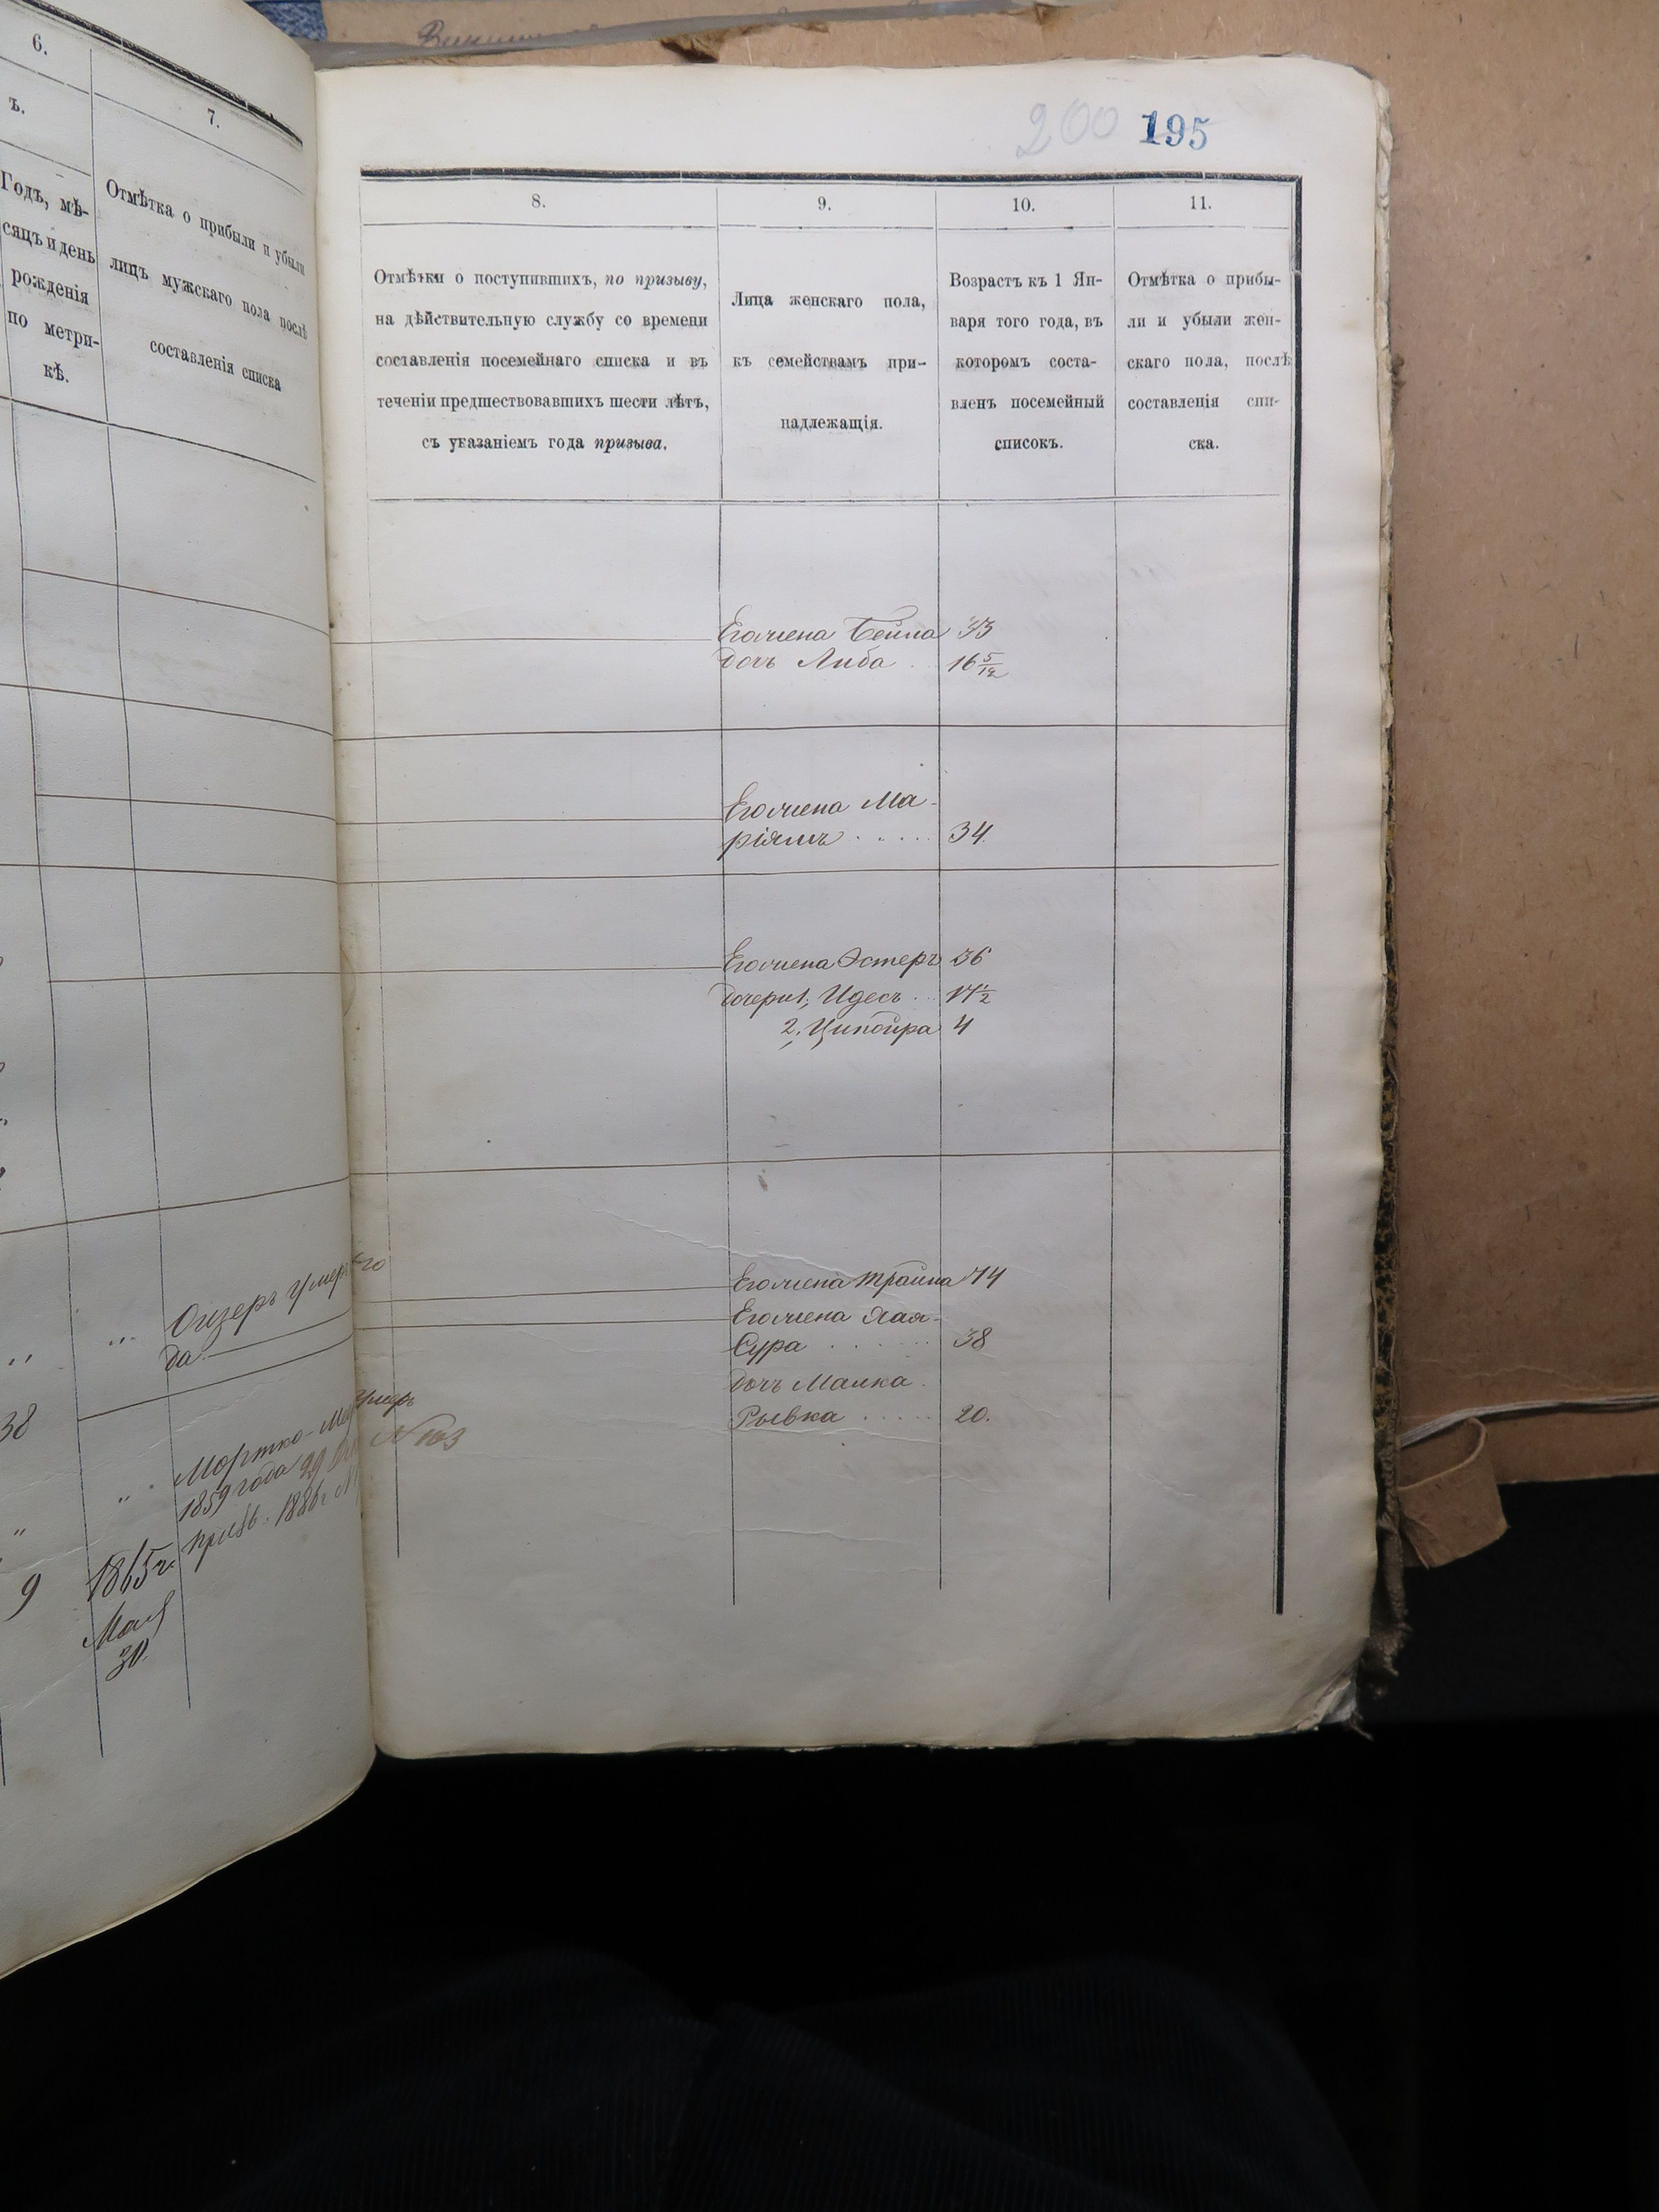 6.
ъ.
Годъ, мѣ-
сяцъ и день
рожденія
по метри-
кѣ.
7.
Отмѣтка о прибыли и убыли
лицъ мужскаго пола послѣ
составленія списка
Умеръ
да
38
Мортко-
1859 года 29
призв. 1886 г.
9
1865 г.
Мая
30.
200 195
8.
Отмѣтки о поступившихъ, по призыву,
на дѣйствительную службу со времени
составленія посемейнаго списка и въ
теченіи предшествовавшихъ шести лѣтъ,
съ указаніемъ года призыва.
умеръ
N 103
9.
Лица женскаго пола,
къ семействамъ при-
надлежащія.
10.
Возрастъ къ 1 Ян-
варя того года, въ
которомъ соста-
вленъ посемейный
списокъ.
11.
Отмѣтка о прибы-
ли и убыли жен-
скаго пола, послѣ
составленія спи-
ска.
Его жена Бейла 33
дочь Либа 16 5/12
Его жена Ма-
ріямъ . . . . . 34
Его жена Эстеръ 36
дочери 1, Идесъ . . 17 1/2
2, Ципойра 4
Его жена Трайна 74
Его жена Хая-
Сура . . . . . 38
дочь Малка
Рывка . . . . . 20.